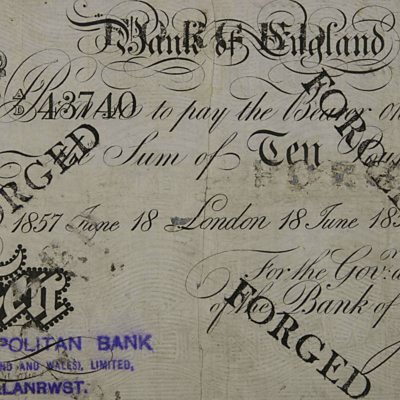 Bank of England
A/D 43740 to pay the Bearer on
FORGED
Sum of Ten
FORGED
1857 June 18 London 18 June 185
For the Gov.
of the Bank of
FORGED
POLITAN BANK
ND AND WALES), LIMITED,
LLANRWST.